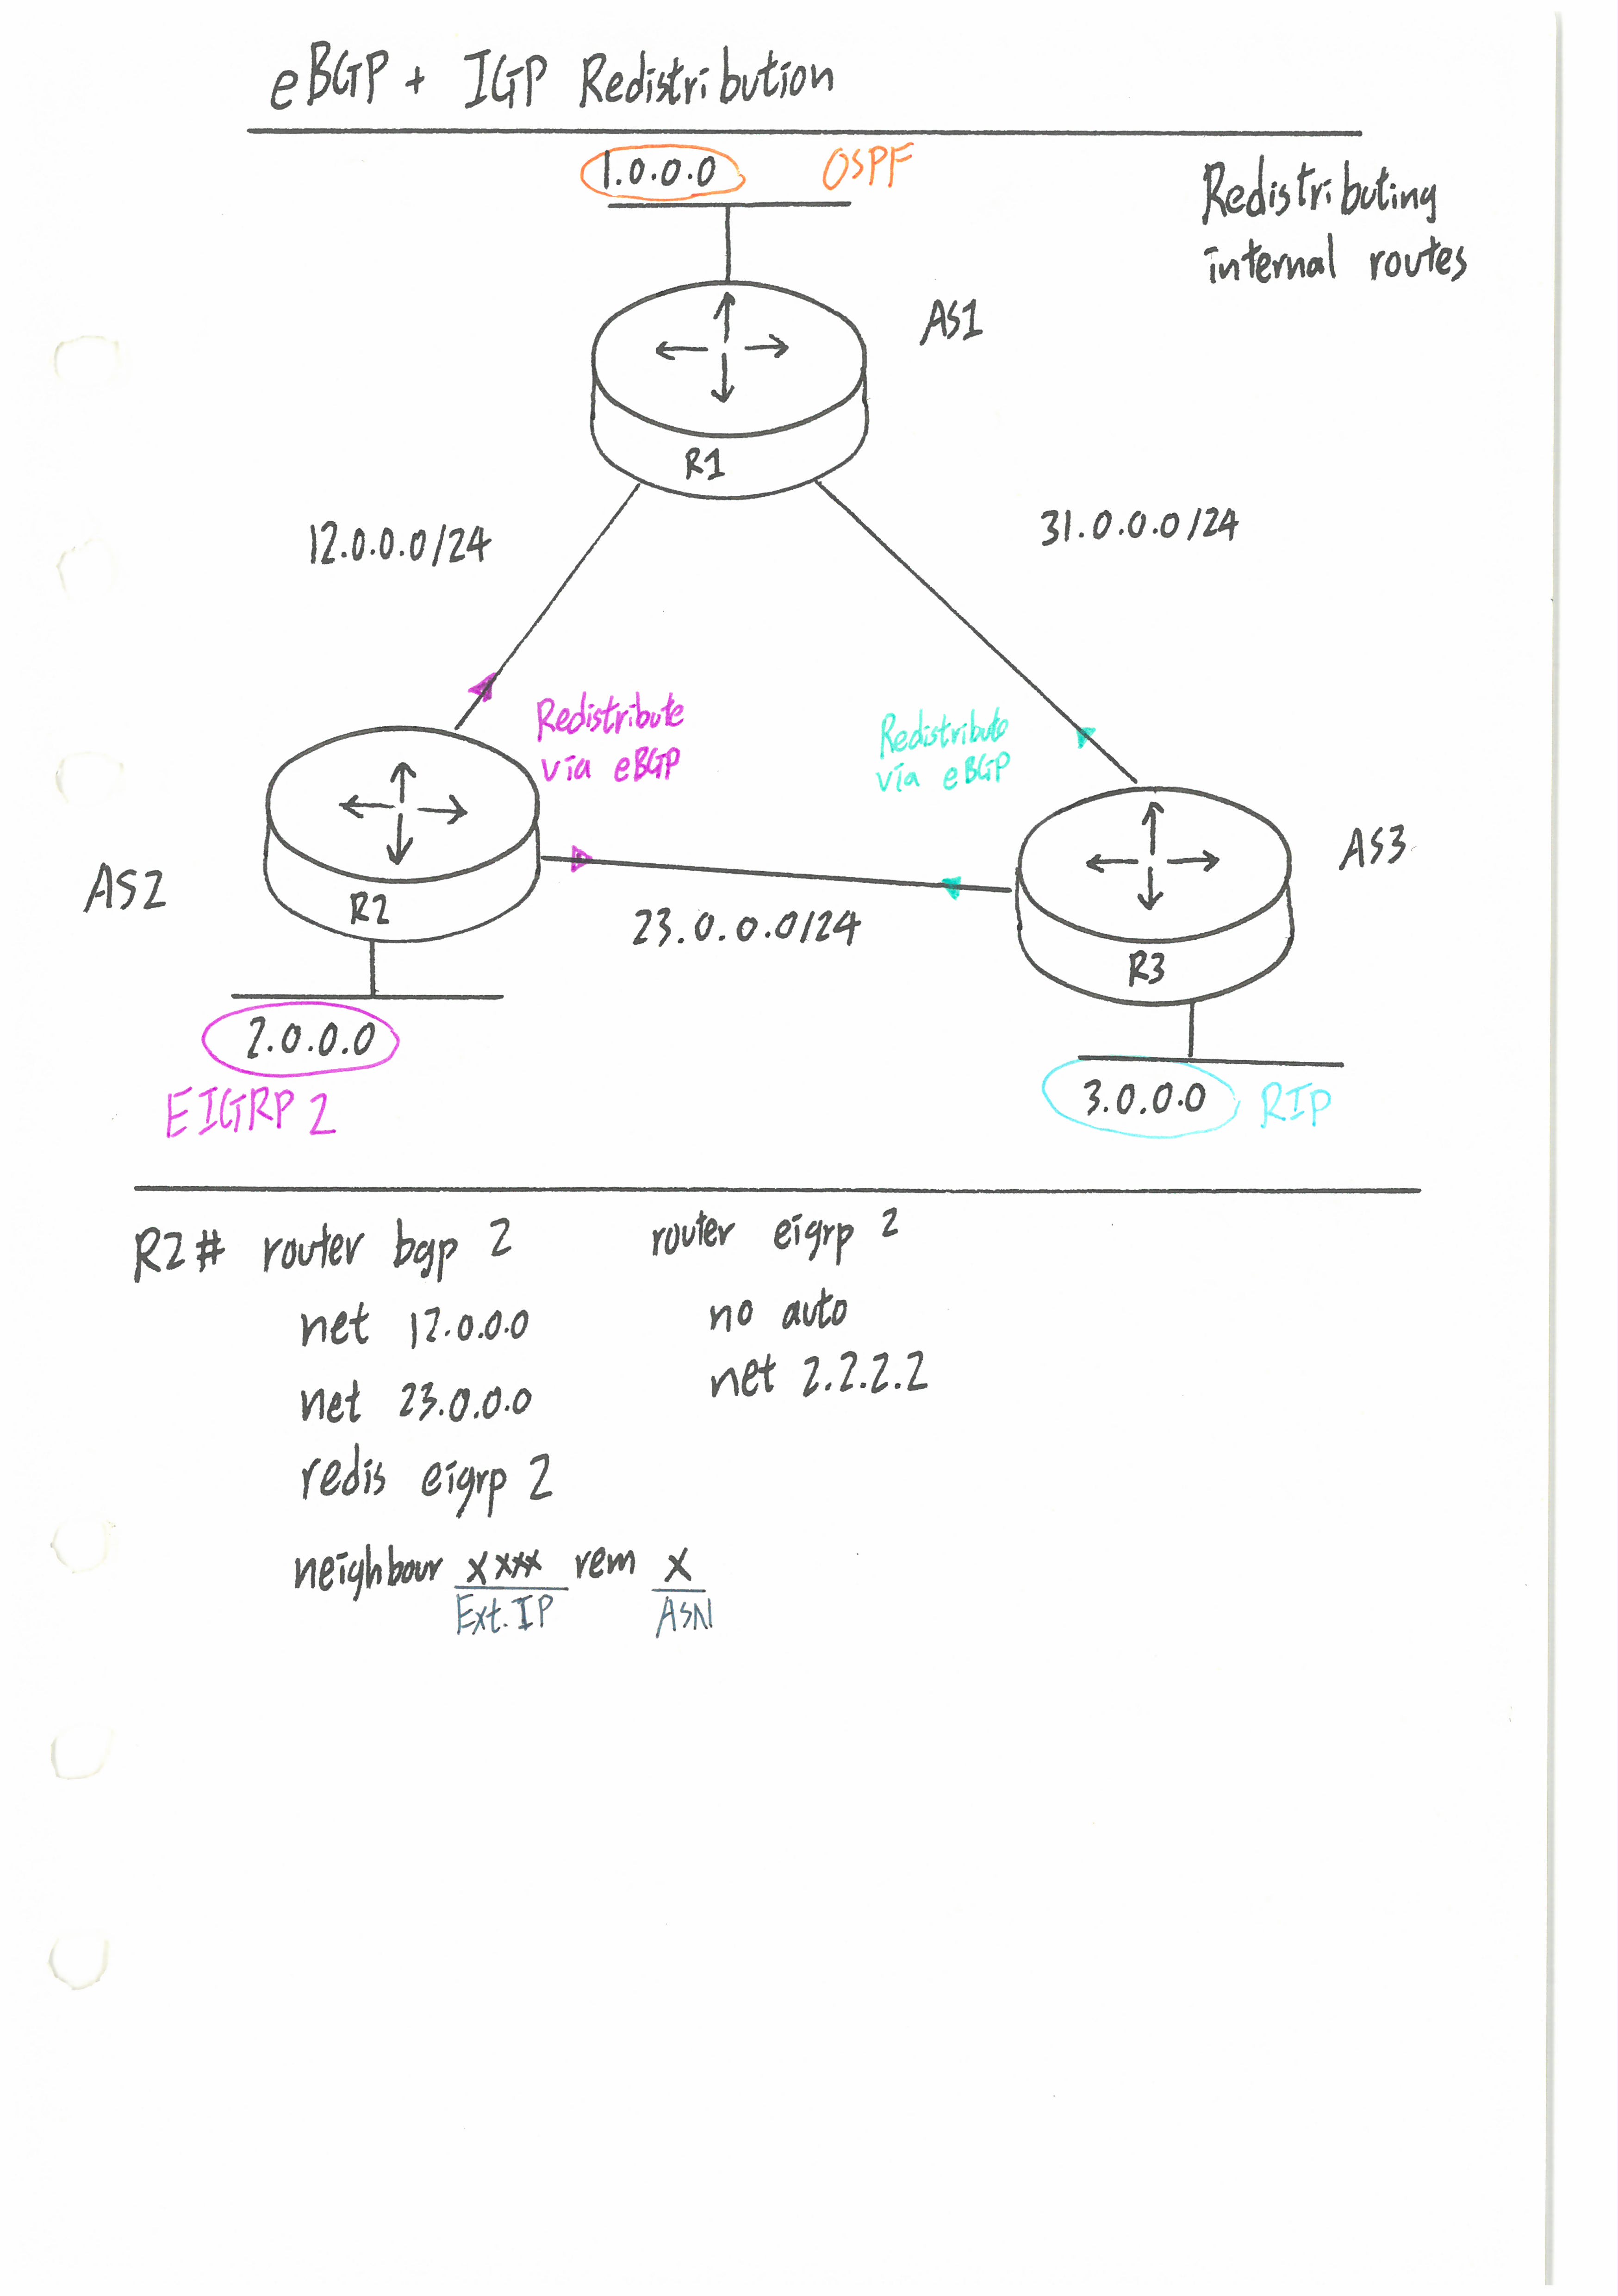 eBGP + IGP Redistribution
1.0.0.0 OSPF
Redistributing
internal routes
AS1
R1
12.0.0.0/24
31.0.0.0/24
Redistribute
via eBGP
Redistribute
via eBGP
AS2
R2
23.0.0.0/24
AS3
R3
2.0.0.0
EIGRP 2
3.0.0.0 RIP
R2# router bgp 2
net 12.0.0.0
net 23.0.0.0
redis eigrp 2
neighbour xxxx rem x
Ext.IP ASN
router eigrp 2
no auto
net 2.2.2.2